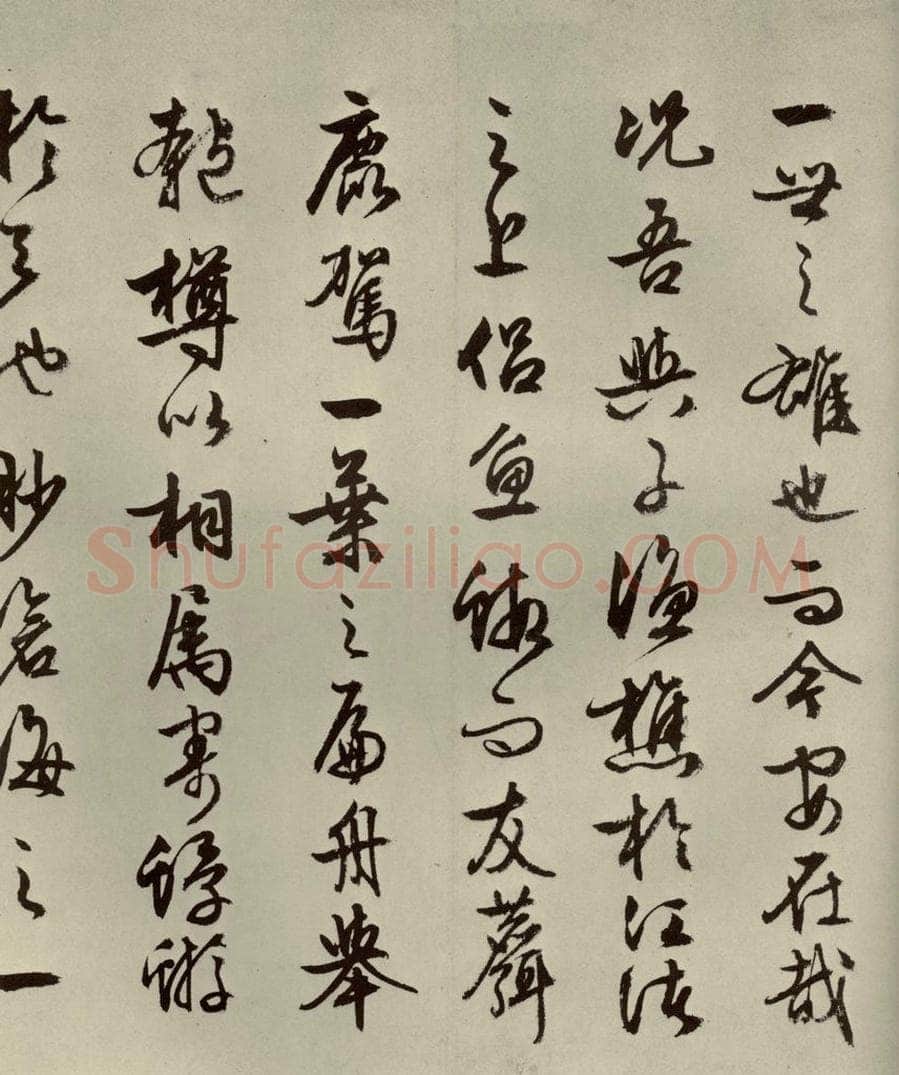 一世之雄也而今安在哉
況吾與子漁樵於江渚
之上侶魚蝦而友麋
鹿駕一葉之扁舟舉
匏樽以相屬寄蜉蝣
於天地眇滄海之一
Shufaziliao.COM